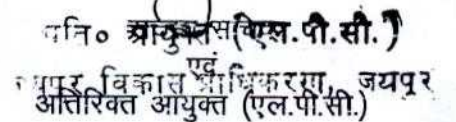 अति० आयुक्त (एल.पी.सी.)
एवं
विकास प्राधिकरण, जयपुर
अतिरिक्त आयुक्त (एल.पी.सी.)